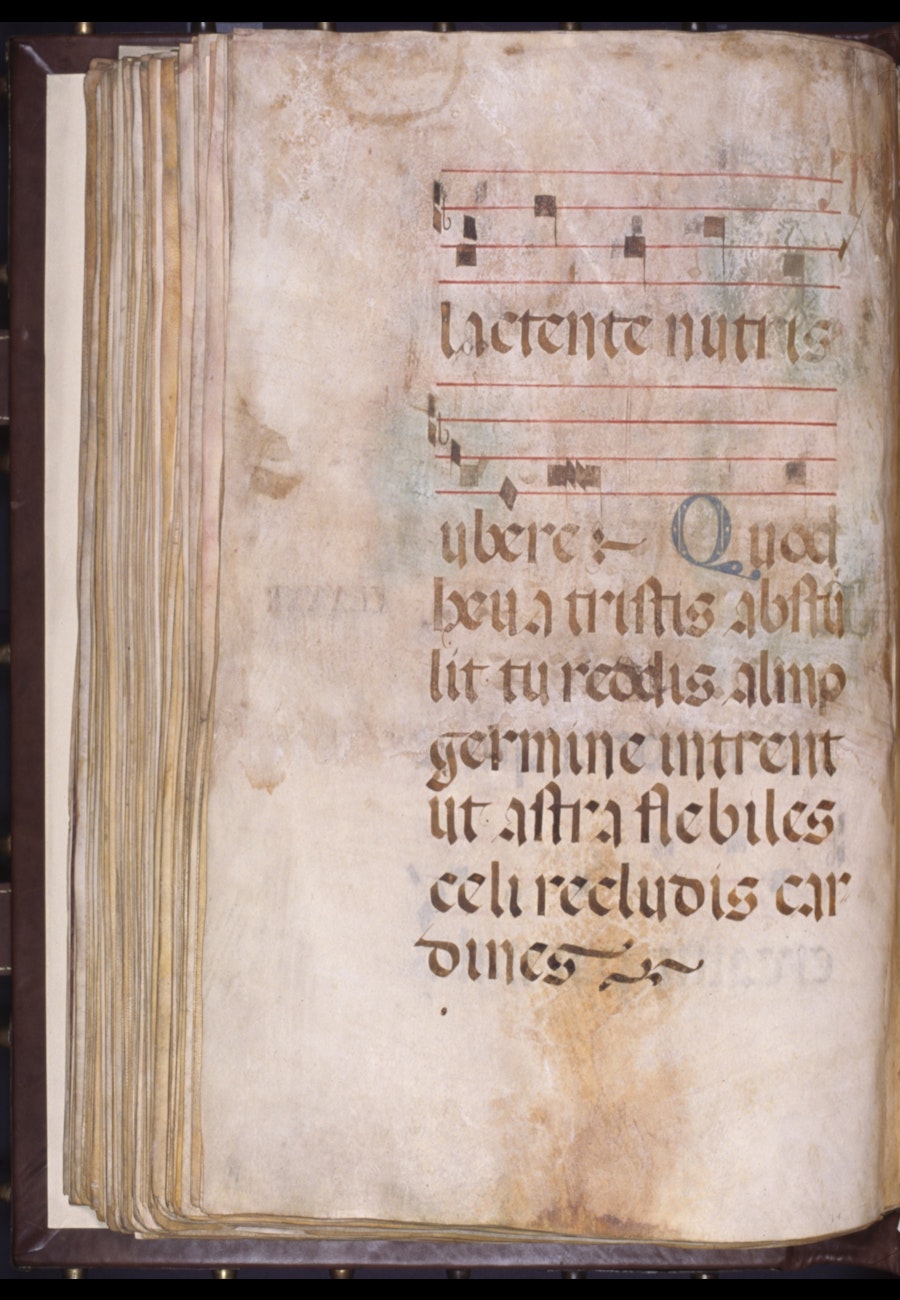 lactente nutris
ubere :~ Quod
heua tristis abstu
lit tu reddis almo
germine intrent
ut astra flebiles
celi recludis car
dines